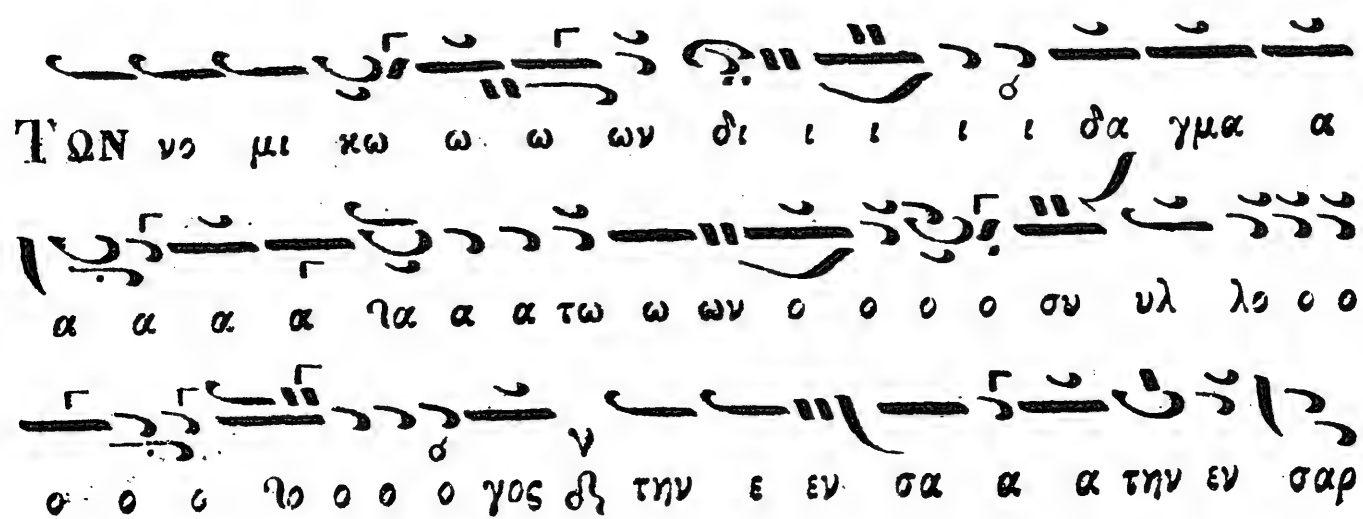 ΤΩΝ νο μι κω ω ω ων δι ι ι ι ι δα γμα α
α α α α γα α α τω ω ων ο ο ο ο συ υλ λο ο ο
ο ο ο γο ο ο ο γος την ε εν σα α α την εν σαρ